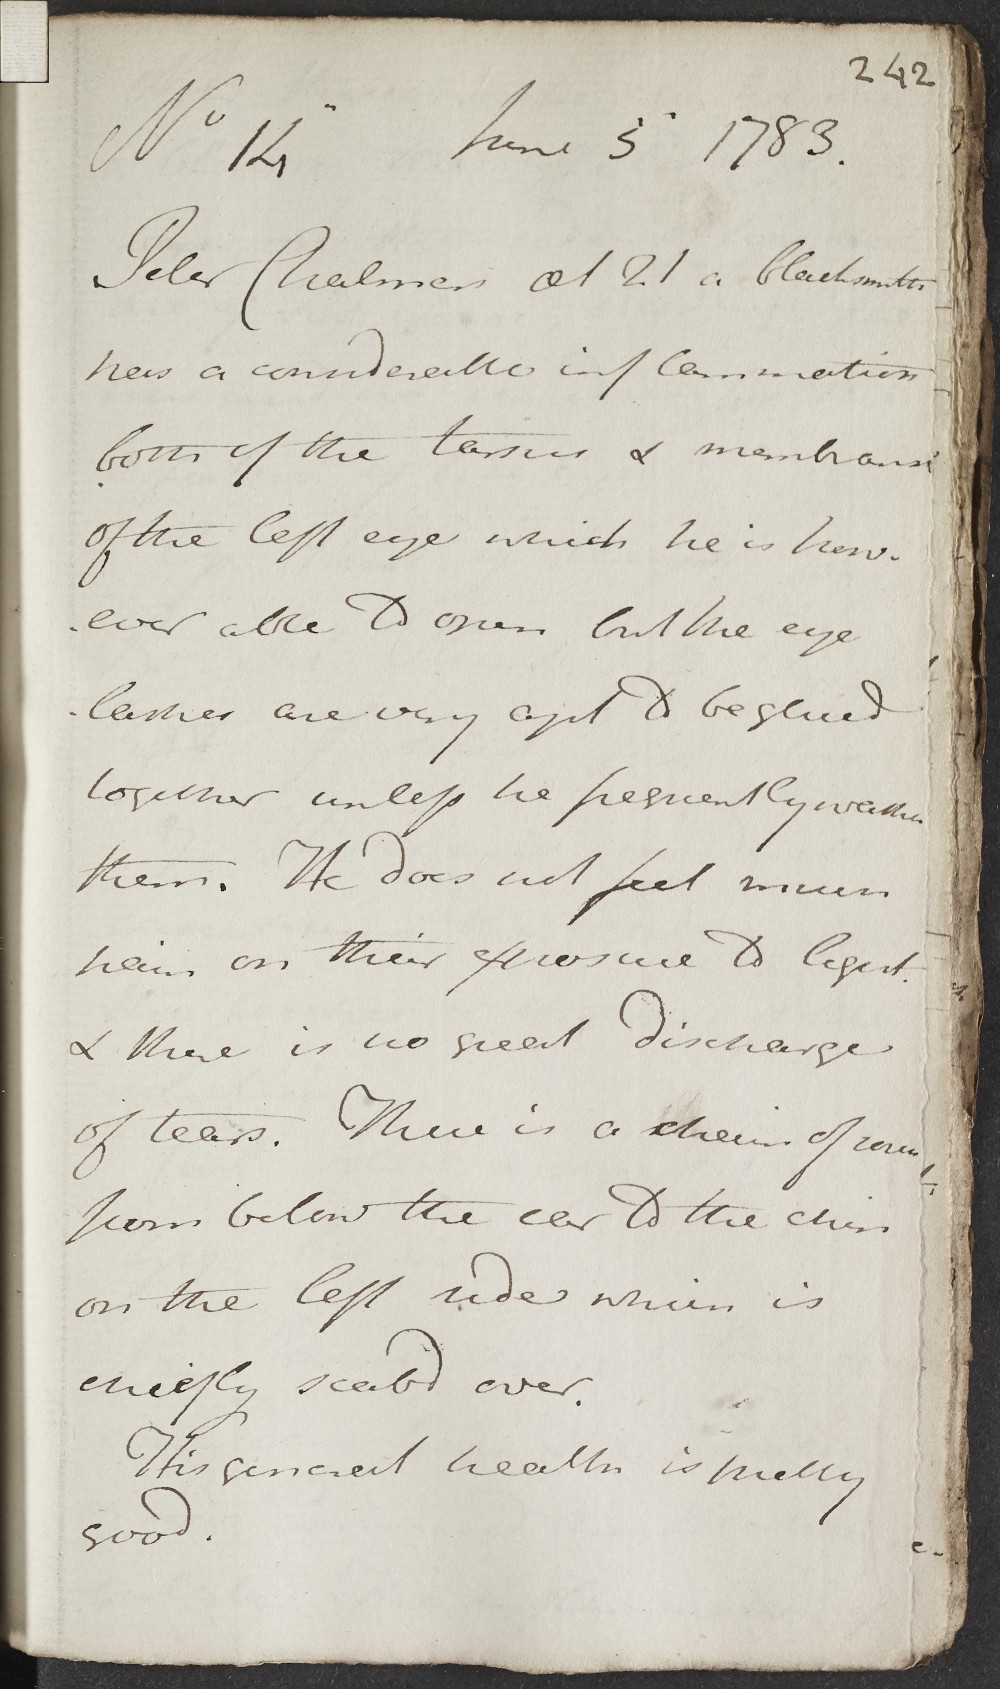 242
No 14 June 5 1783.
Peter Chalmers æt 21 a blacksmith
has a considerable inflammation
both of the tarsus & membranes
of the left eye which he is how-
-ever able to open but the eye
-lashes are very apt to be glued
together unless he frequently washes
them. He does not feel much
pain on their exposure to light.
& there is no great discharge
of tears. There is a chain of sores
from below the ear to the chin
on the left side which is
chiefly scab'd over.
His general health is pretty
good.